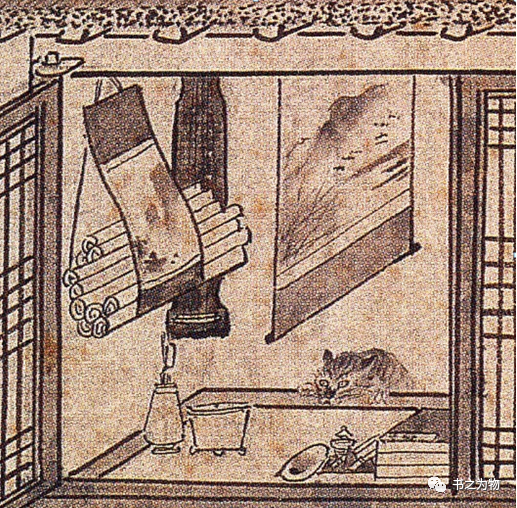 书之为物